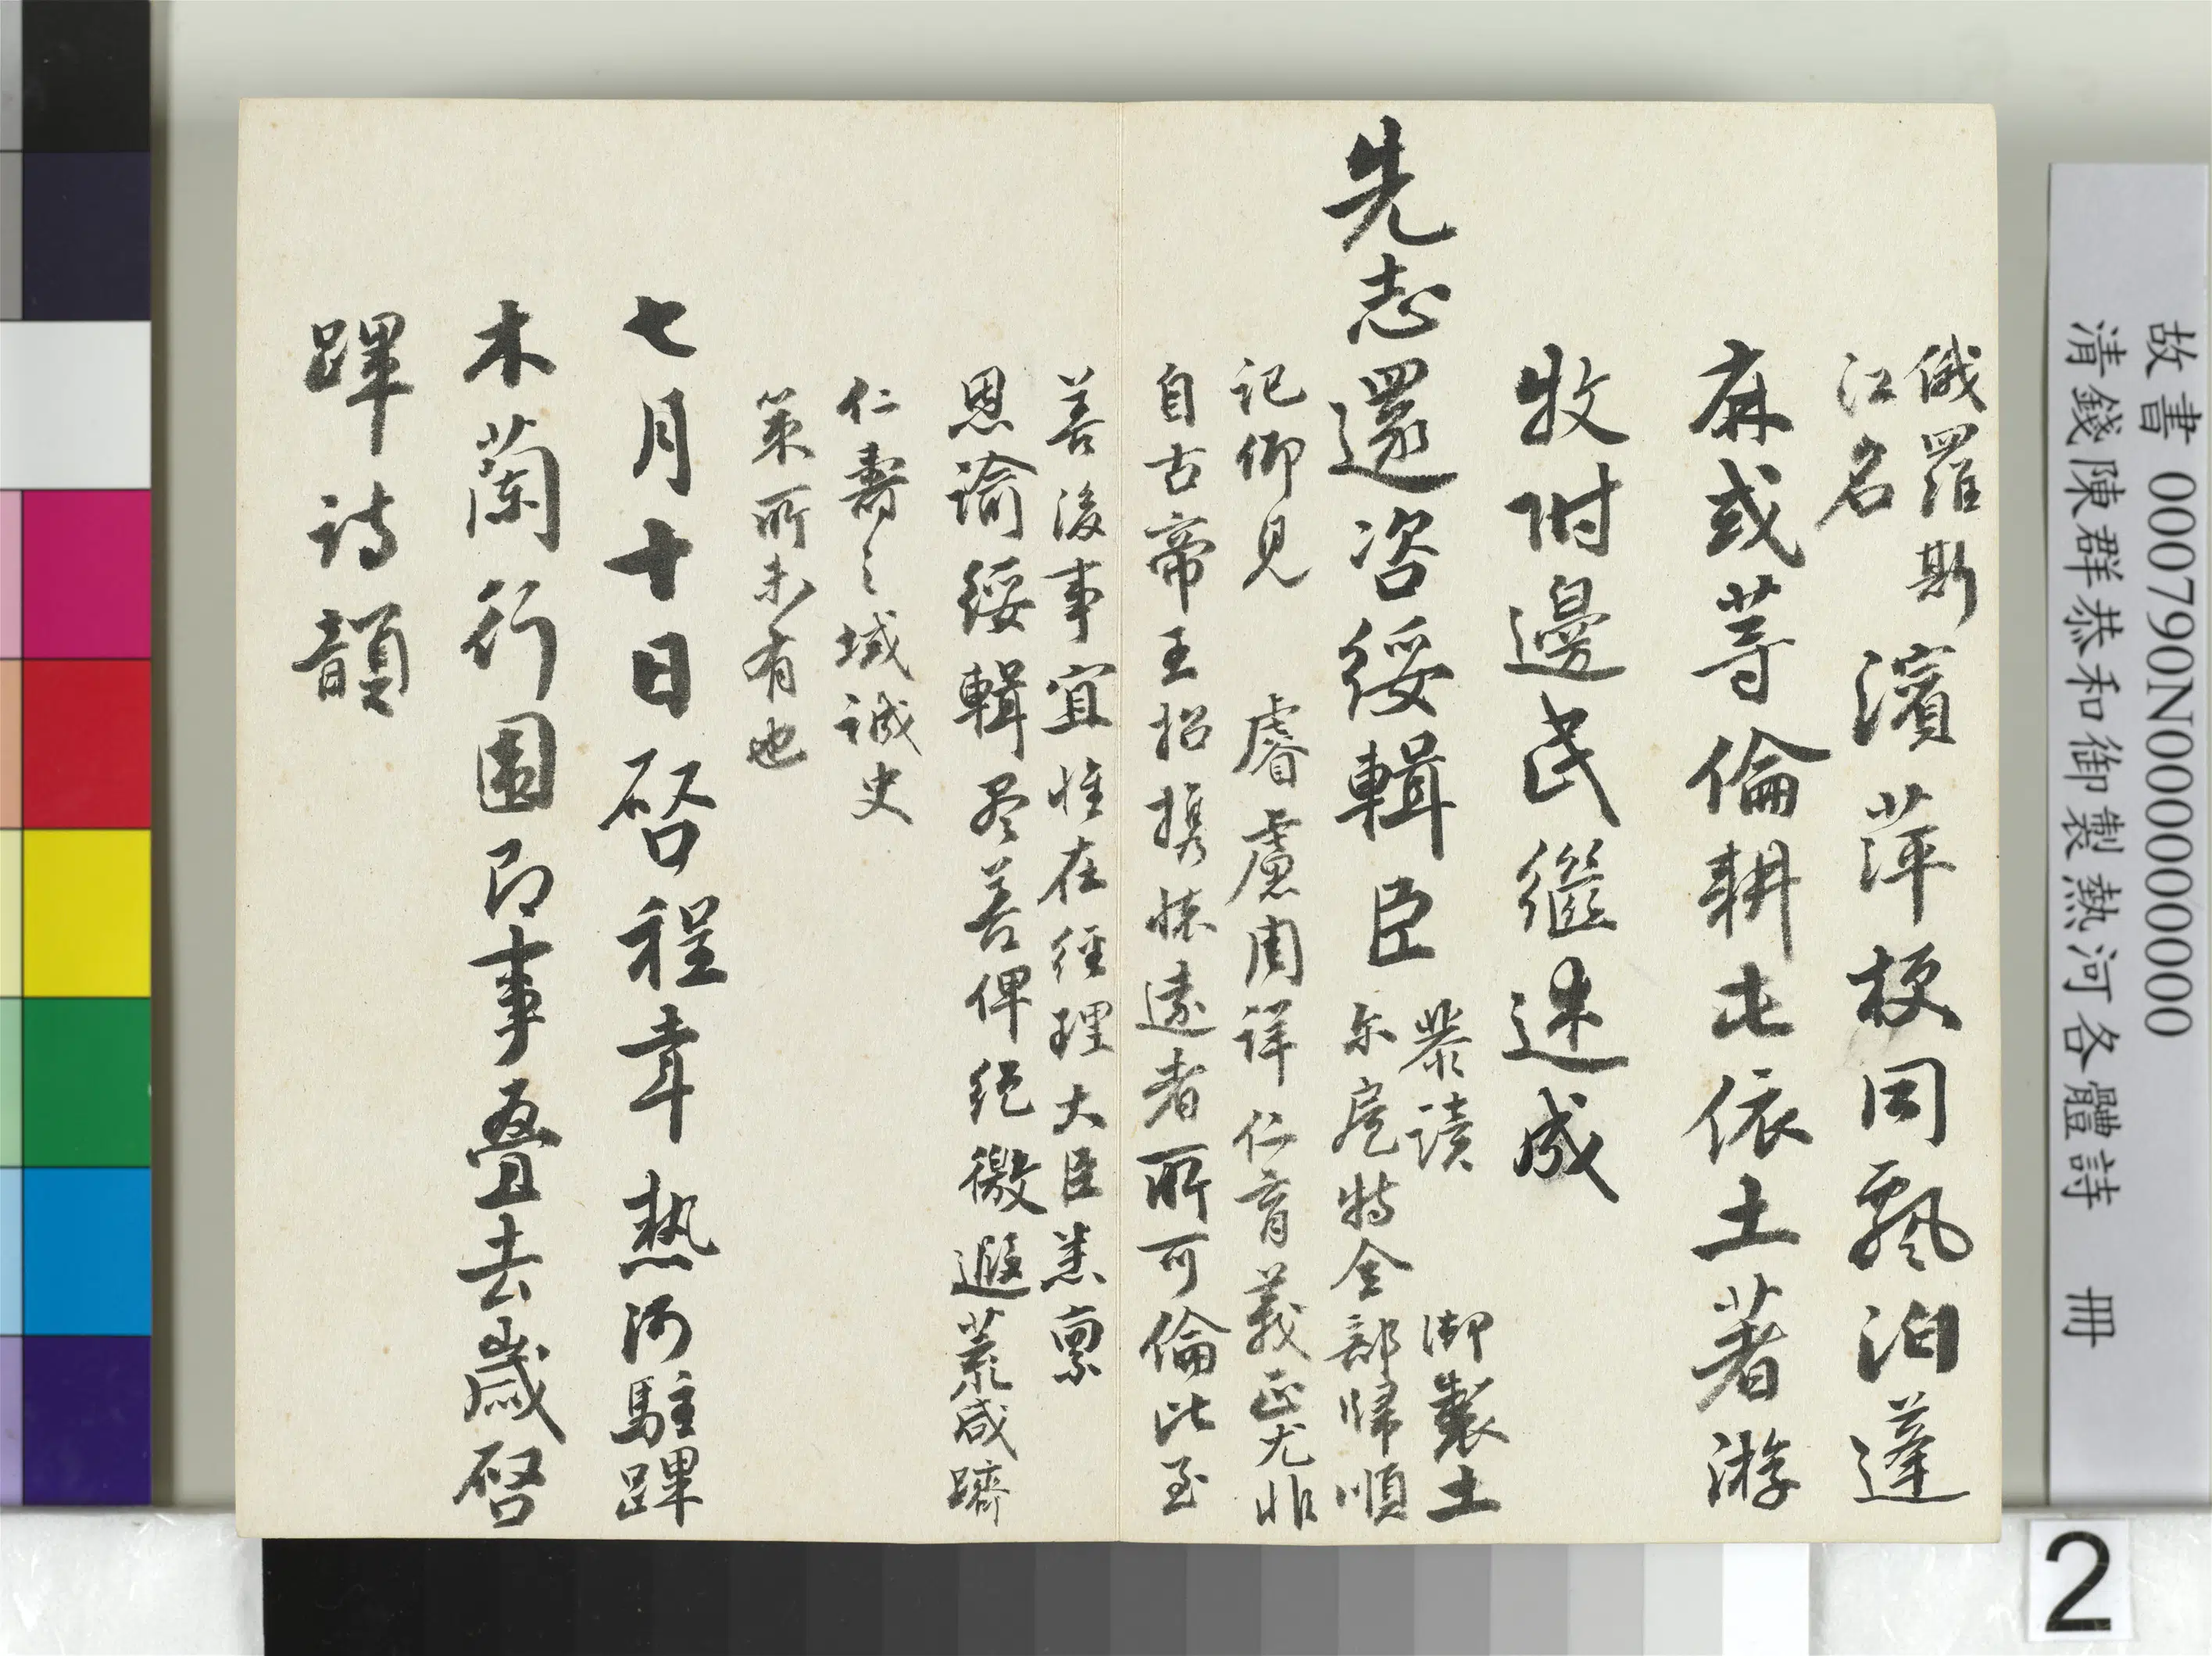 俄羅斯
江名
濱萍梗同飄泊蓬
麻或等倫耕屯依土著游
牧附邊民繼述成
先志還咨綏輯臣
恭讀 御製土
尔扈特全部歸順
記仰見 睿慮周詳仁育義正尤非
自古帝王招携懷遠者所可倫比至
善後事宜惟在經理大臣悉禀
恩諭綏輯尽善俾絕徼遐荒咸躋
仁壽之域誠史
策所未有也
七月十日啓程幸熱河駐蹕
木蘭行圍即事疊去歲啓
蹕詩韻
故書 000790N000000000
清錢陳群恭和御製熱河各體詩 冊
2